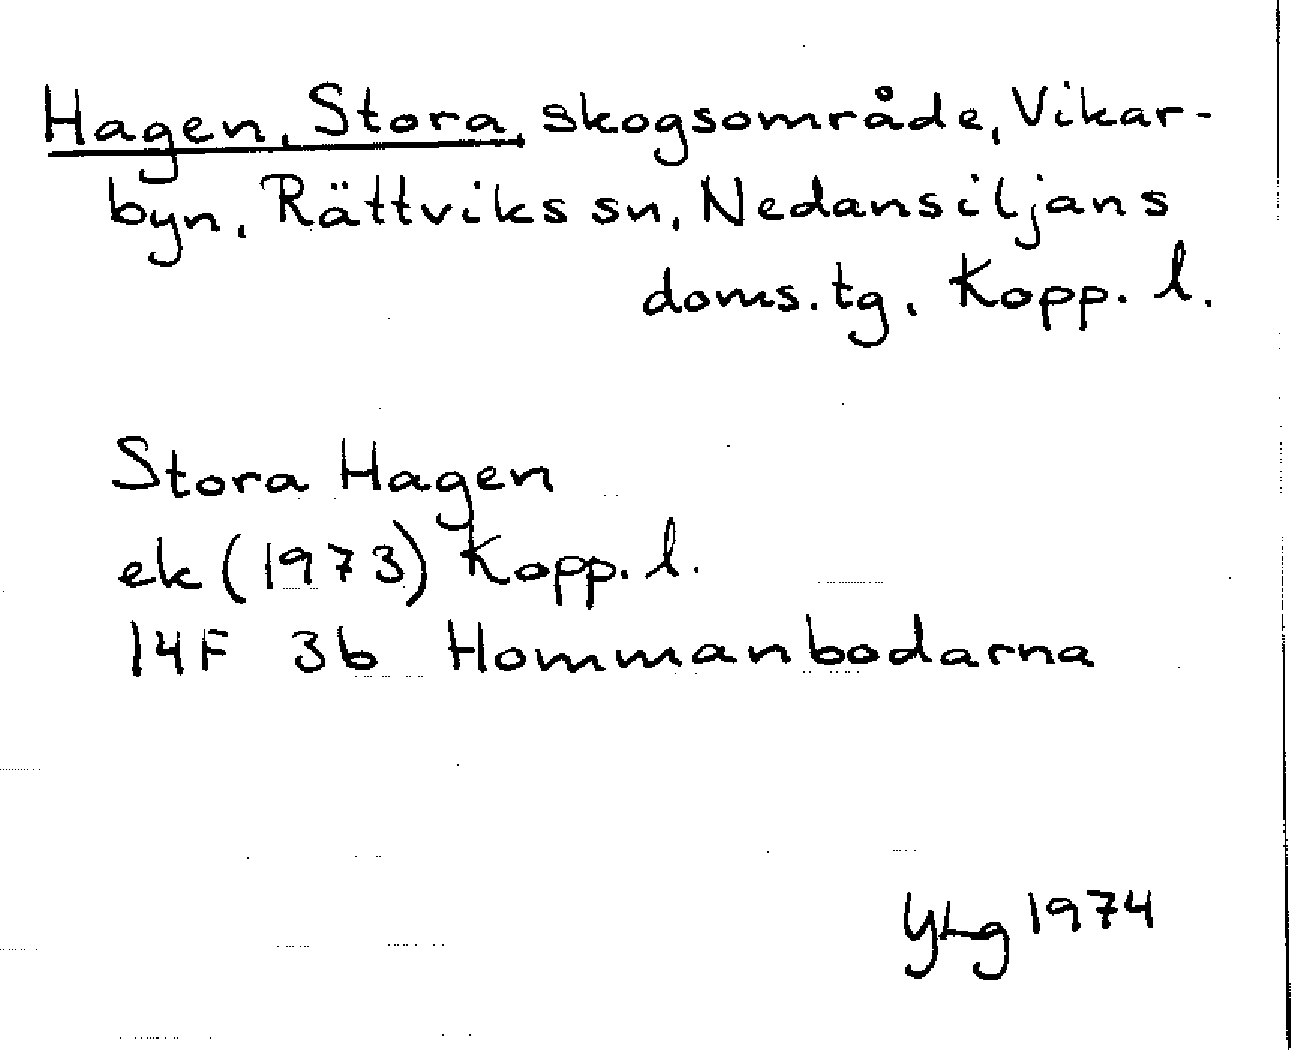 Hagen, Stora, skogsområde, Vikar-
byn, Rättviks sn, Nedansiljans
doms.tg, Kopp. l.
Stora Hagen
ek (1973) Kopp. l.
14F 3b Hommanbodarna
YLg 1974